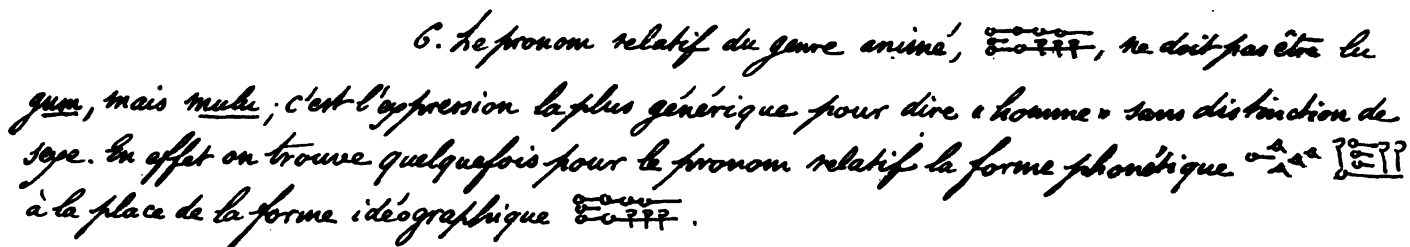 6. Le pronom relatif du genre animé, , ne doit pas être lu
gum, mais mulu; c'est l'expression la plus générique pour dire « homme » sans distinction de
sexe. En effet on trouve quelquefois pour le pronom relatif la forme phonétique
à la place de la forme idéographique .